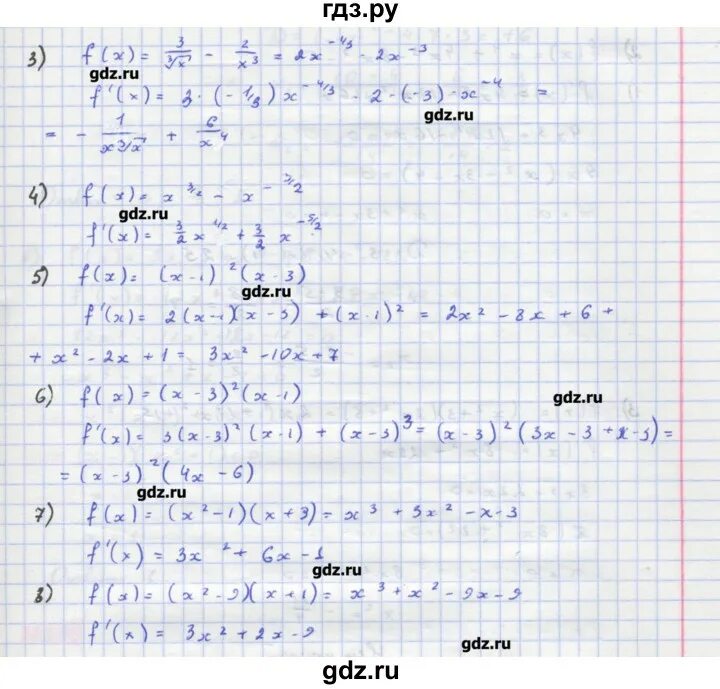 гдз.ру
3) f(x) = 3/∛x - 2/x³ = 2x^(-4/3) - 2x^(-3)
gdz.ru
f'(x) = 3·(-1/3)x^(-4/3) - 2·(-3)·x^(-4) =
= - 1/(x∛x) + 6/x⁴
gdz.ru
4) f(x) = x^(3/2) - x^(-3/2)
gdz.ru
f'(x) = 3/2 x^(1/2) + 3/2 x^(-5/2)
5) f(x) = (x-1)²(x-3)
gdz.ru
f'(x) = 2(x-1)(x-3) + (x-1)² = 2x² - 8x + 6 +
+ x² - 2x + 1 = 3x² - 10x + 7
6) f(x) = (x-3)²(x-1)
gdz.ru
f'(x) = 3(x-3)²(x-1) + (x-3)³ = (x-3)²(3x-3+x-3) =
= (x-3)²(4x-6)
gdz.ru
7) f(x) = (x²-1)(x+3) = x³ + 3x² - x - 3
f'(x) = 3x² + 6x - 1
gdz.ru
8) f(x) = (x²-9)(x+1) = x³ + x² - 9x - 9
f'(x) = 3x² + 2x - 9
gdz.ru
gdz.ru